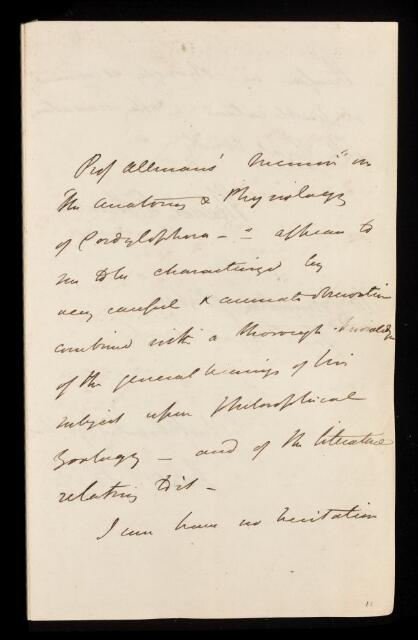 Prof Allman's Memoir "on
the Anatomy & Physiology
of Cordylophora — " appears to
me to be characterized by
very careful & accurate observation
combined with a thorough knowledge
of the general bearings of his
subject upon Philosophical
Zoology — and of the literature
relating to it —
I can have no hesitation
11